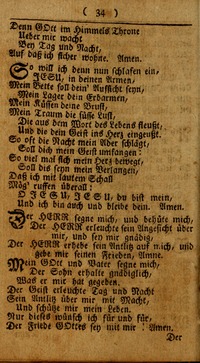 ( 34 )
Denn GOtt im Himmels Throne
Ueber mir wacht
Bey Tag und Nacht,
Auf daß ich sicher wohne. Amen.
So will ich denn nun schlafen ein,
JESU, in deinen Armen,
Mein Bette soll dein' Aufsicht seyn,
Mein Lager dein Erbarmen,
Mein Küssen deine Brust,
Mein Traum die süsse Lust,
Die aus dem Wort des Lebens fleußt,
Und die dein Geist ins Herz eingeußt.
So oft die Nacht mein Ader schlägt,
Soll dich mein Geist umfangen:
So viel mal sich mein Herz bewegt,
Soll dis seyn mein Verlangen,
Daß ich mit lautem Schall
Mög' ruffen überall:
O JESU, JESU, du bist mein,
Und ich bin auch und bleibe dein. Amen.
Der HERR segne mich, und behüte mich,
Der HERR erleuchte sein Angesicht über
mir, und sey mir gnädig,
Der HERR erhebe sein Antlitz auf mich, und
gebe mir seinen Frieden, Amen.
Mein GOtt und Vater segne mich,
Der Sohn erhalte gnädiglich,
Was er mir hat gegeben.
Der Geist erleuchte Tag und Nacht
Sein Antlitz über mir mit Macht,
Und schütze mir mein Leben.
Nur dieses wünsch ich für und für,
Der Friede GOttes sey mit mir! Amen.
Der